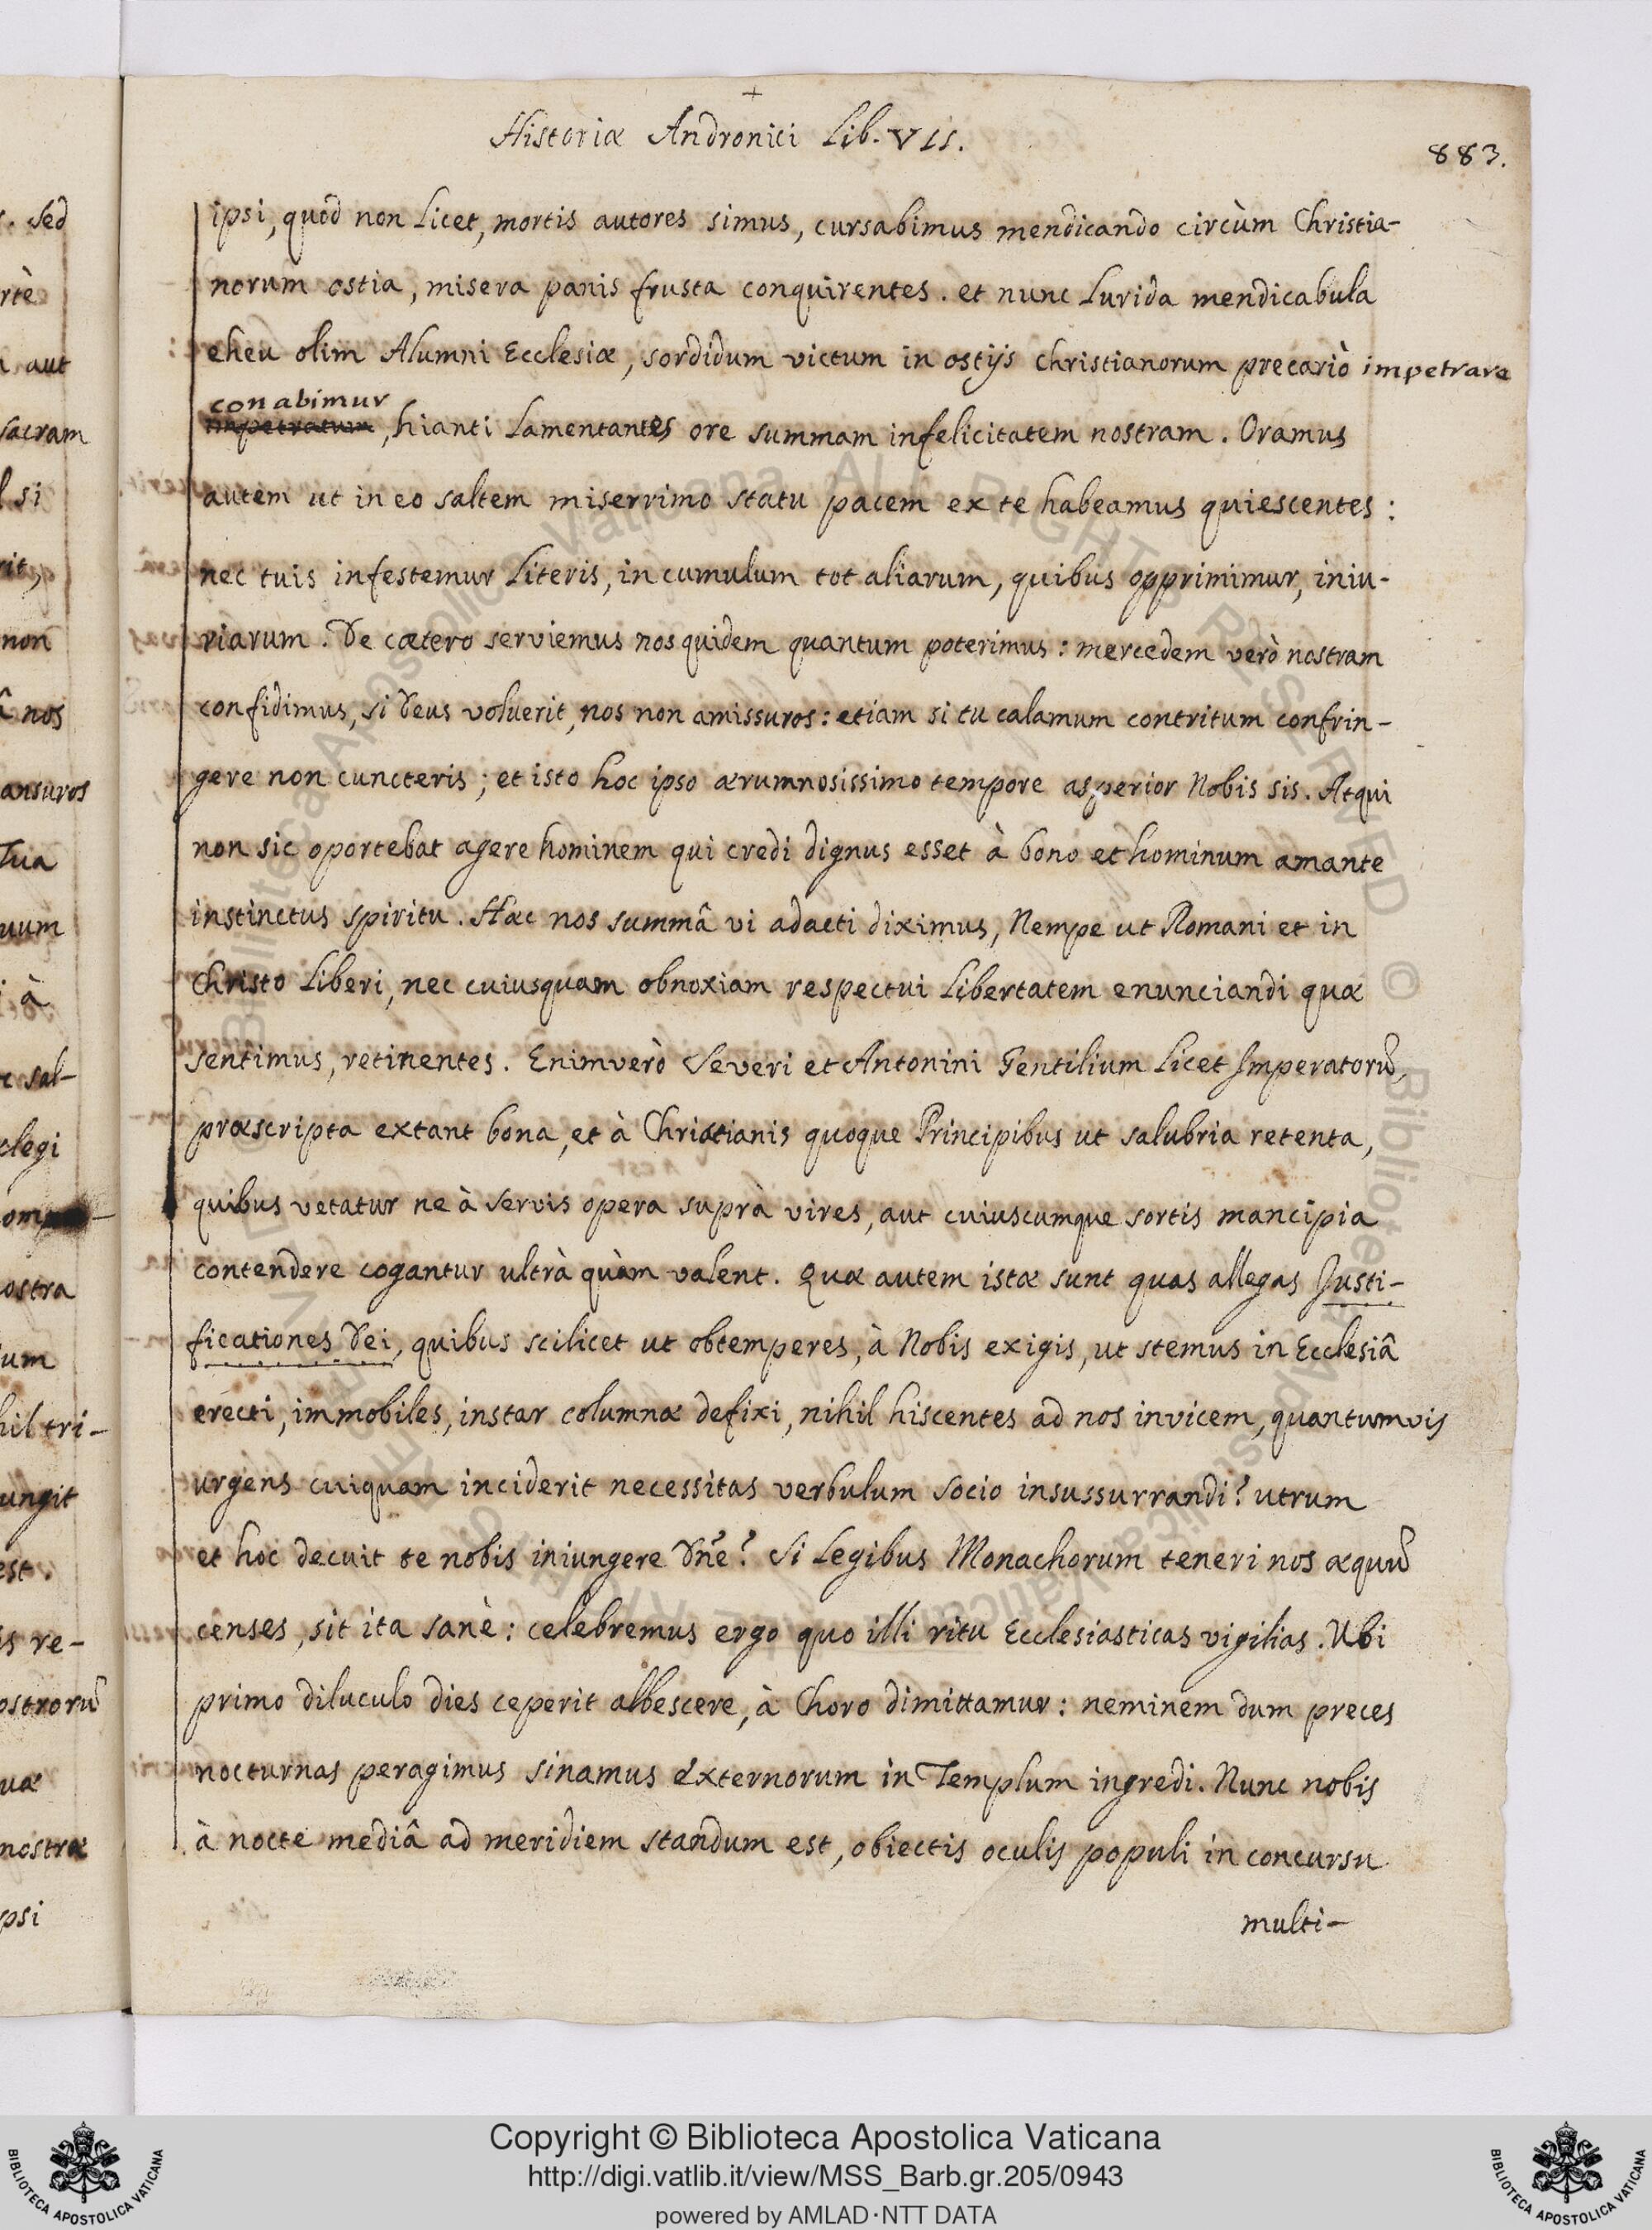 +
Historiæ Andronici Lib. VII.
883.
ipsi, quod non licet, mortis autores simus, cursabimus mendicando circùm Christia-
norum ostia, misera panis frusta conquirentes. et nunc lurida mendicabula
eheu olim Alumni Ecclesiæ, sordidum victum in ostijs christianorum precariò impetrare
conabimur
impetratum, hianti lamentantes ore summam infelicitatem nostram. Oramus
autem ut in eo saltem miserrimo statu pacem ex te habeamus quiescentes:
nec tuis infestemur literis, in cumulum tot aliarum, quibus opprimimur, iniu-
riarum. De cætero serviemus nos quidem quantum poterimus: mercedem verò nostram
confidimus, si Deus voluerit, nos non amissuros: etiam si tu calamum contritum confrin-
gere non cuncteris; et isto hoc ipso ærumnosissimo tempore asperior Nobis sis. Atqui
non sic oportebat agere hominem qui credi dignus esset à bono et hominum amante
instinctus spiritu. Hæc nos summâ vi adacti diximus, Nempe ut Romani et in
Christo liberi, nec cuiusquam obnoxiam respectui libertatem enunciandi quæ
sentimus, retinentes. Enimverò Severi et Antonini Gentilium licet Imperatorũ,
præscripta extant bona, et à Christianis quoque Principibus ut salubria retenta,
quibus vetatur ne à servis opera suprà vires, aut cuiuscumque sortis mancipia
contendere cogantur ultrà quàm valent. Quæ autem istæ sunt quas allegas Justi-
ficationes Dei, quibus scilicet ut obtemperes, à Nobis exigis, ut stemus in Ecclesiâ
erecti, immobiles, instar columnæ defixi, nihil hiscentes ad nos invicem, quantumvis
urgens cuiquam inciderit necessitas verbulum socio insussurrandi? utrum
et hoc decuit te nobis iniungere Dñe? Si legibus Monachorum teneri nos æquũ
censes, sit ita sanè: celebremus ergo quo illi ritu Ecclesiasticas vigilias. Ubi
primo diluculo dies ceperit albescere, à Choro dimittamur: neminem dum preces
nocturnas peragimus sinamus externorum in Templum ingredi. Nunc nobis
à nocte mediâ ad meridiem standum est, obiectis oculis populi in concursu
multi-
Copyright © Biblioteca Apostolica Vaticana
http://digi.vatlib.it/view/MSS_Barb.gr.205/0943
powered by AMLAD·NTT DATA
BIBLIOTECA APOSTOLICA VATICANA
BIBLIOTECA APOSTOLICA VATICANA